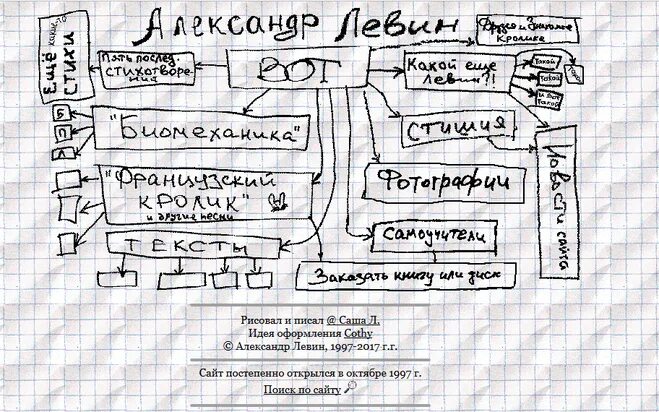 Александр Левин
Друзья и Знакомые
Кролика
Ещё какие-то
стихи
Пять послед.
стихотворе-
ний
ВОТ
Какой еще
Левин?!
Такой
Такой
и вот
такой
"Биомеханика"
Б
П
Л
стишия
"Французский
кролик"
и другие песни
Фотографии
Новости сайта
Самоучители
тексты
Заказать книгу или диск
Рисовал и писал @ Саша Л.
Идея оформления Cothy
© Александр Левин, 1997-2017 г.г.
Сайт постепенно открылся в октябре 1997 г.
Поиск по сайту